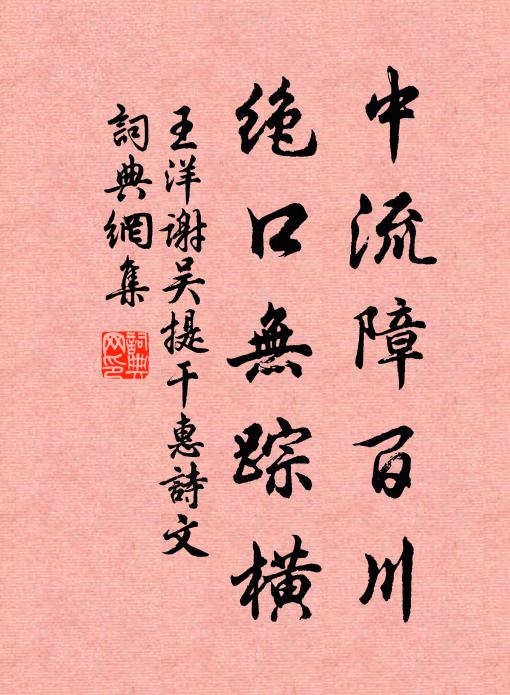 中流障百川
绝口無踪橫
王洋谢吴提干惠詩文
詞典網集
詞典网印